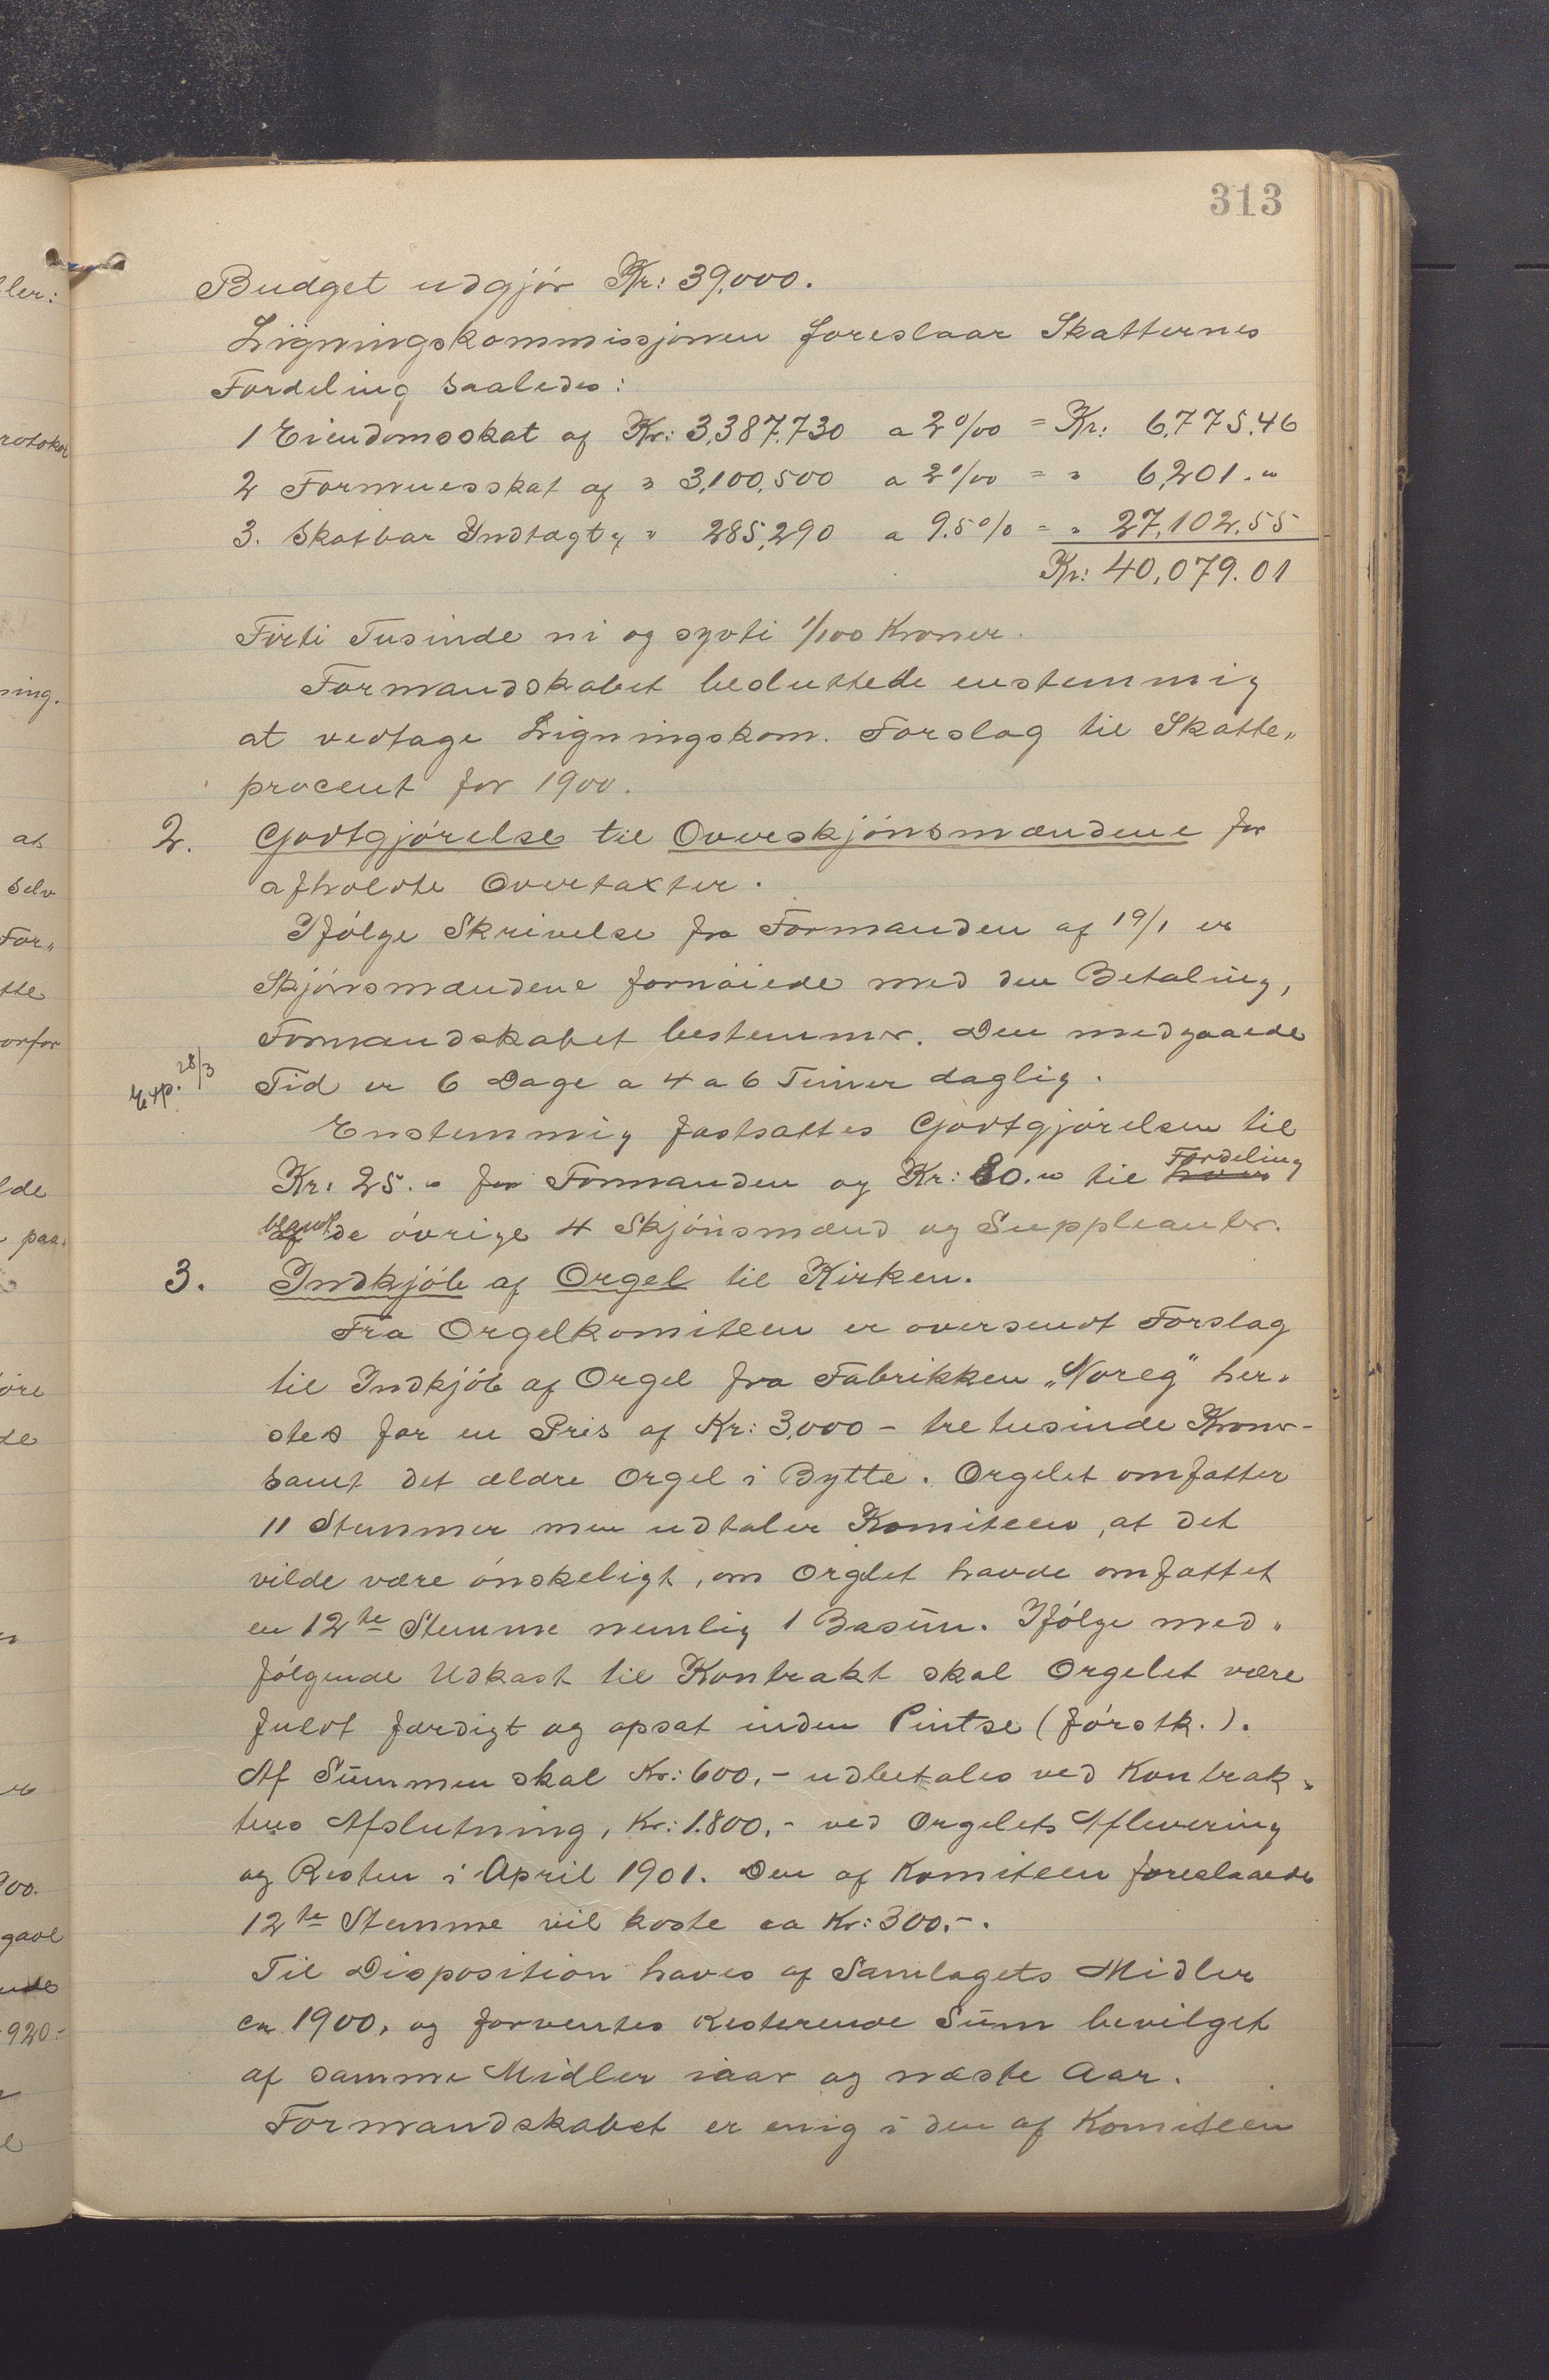 313
Budget udgjør Kr: 39,000.
Ligningskommissjonen foreslaar Skatternes
Fordeling saaledes:
1 Eiendomsskat af Kr: 3,387,730 a 2 0/00 = Kr: 6,775.46
2 Formuesskat af " 3,100,500 a 2 0/00 = " 6,201."
3. Skatbar Indtægt af " 285,290 a 9.5 % = " 27,102.55
Kr: 40,079.01
Firti Tusinde ni og sytti 1/100 Kroner.
Formandskabet besluttede enstemmig
at vedtage Ligningskom. Forslag til Skatte„
procent for 1900.
2. Godtgjørelse til Overskjønsmændene for
afholdte Overtaxter.
Ifølge Skrivelse fra Formanden af 19/1 er
Skjønsmændene fornøiede med den Betaling,
Formandskabet bestemmer. Den medgaaede
Exp. 28/3
Tid er 6 Dage a 4 a 6 Timer daglig.
Enstemmig fastsattes Godtgjørelsen til
Kr: 25." for Formanden og Kr: 80." til Fordeling
blandt de øvrige 4 Skjønsmænd og Suppleanter.
3. Indkjøb af Orgel til Kirken.
Fra Orgelkomiteen er oversendt Forslag
til Indkjøb af Orgel fra Fabrikken „Noreg" her„
steds for en Pris af Kr: 3,000 - tretusinde Kroner -
samt det ældre Orgel i Bytte. Orgelet omfatter
11 Stemmer men udtaler Komiteen, at det
vilde være ønskeligt, om Orglet havde omfattet
en 12te Stemme nemlig 1 Basun. Ifølge med„
følgende Udkast til Kontrakt skal Orgelet være
fuldt færdigt og opsat inden Pintse (førstk.).
Af Summen skal Kr: 600,- udbetales ved Kontrak„
tens Afslutning, Kr: 1.800,- ved Orgelets Aflevering
og Resten i April 1901. Den af Komiteen foreslaaede
12te Stemme vil koste ca Kr: 300,-.
Til Disposition haves af Samlagets Midler
ca 1900, og forventes resterende Sum bevilget
af samme Midler iaar og næste Aar.
Formandskabet er enig i den af Komiteen